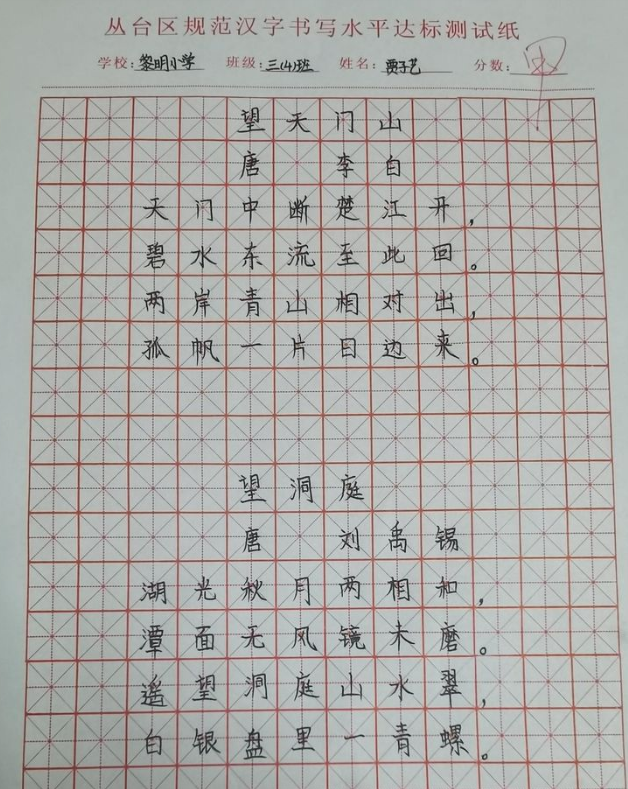 丛台区规范汉字书写水平达标测试纸
学校：黎明小学 班级：三(4)班 姓名：贾子艺 分数：
望天门山
唐 李白
天门中断楚江开，
碧水东流至此回。
两岸青山相对出，
孤帆一片日边来。
望洞庭
唐 刘禹锡
湖光秋月两相和，
潭面无风镜未磨。
遥望洞庭山水翠，
白银盘里一青螺。